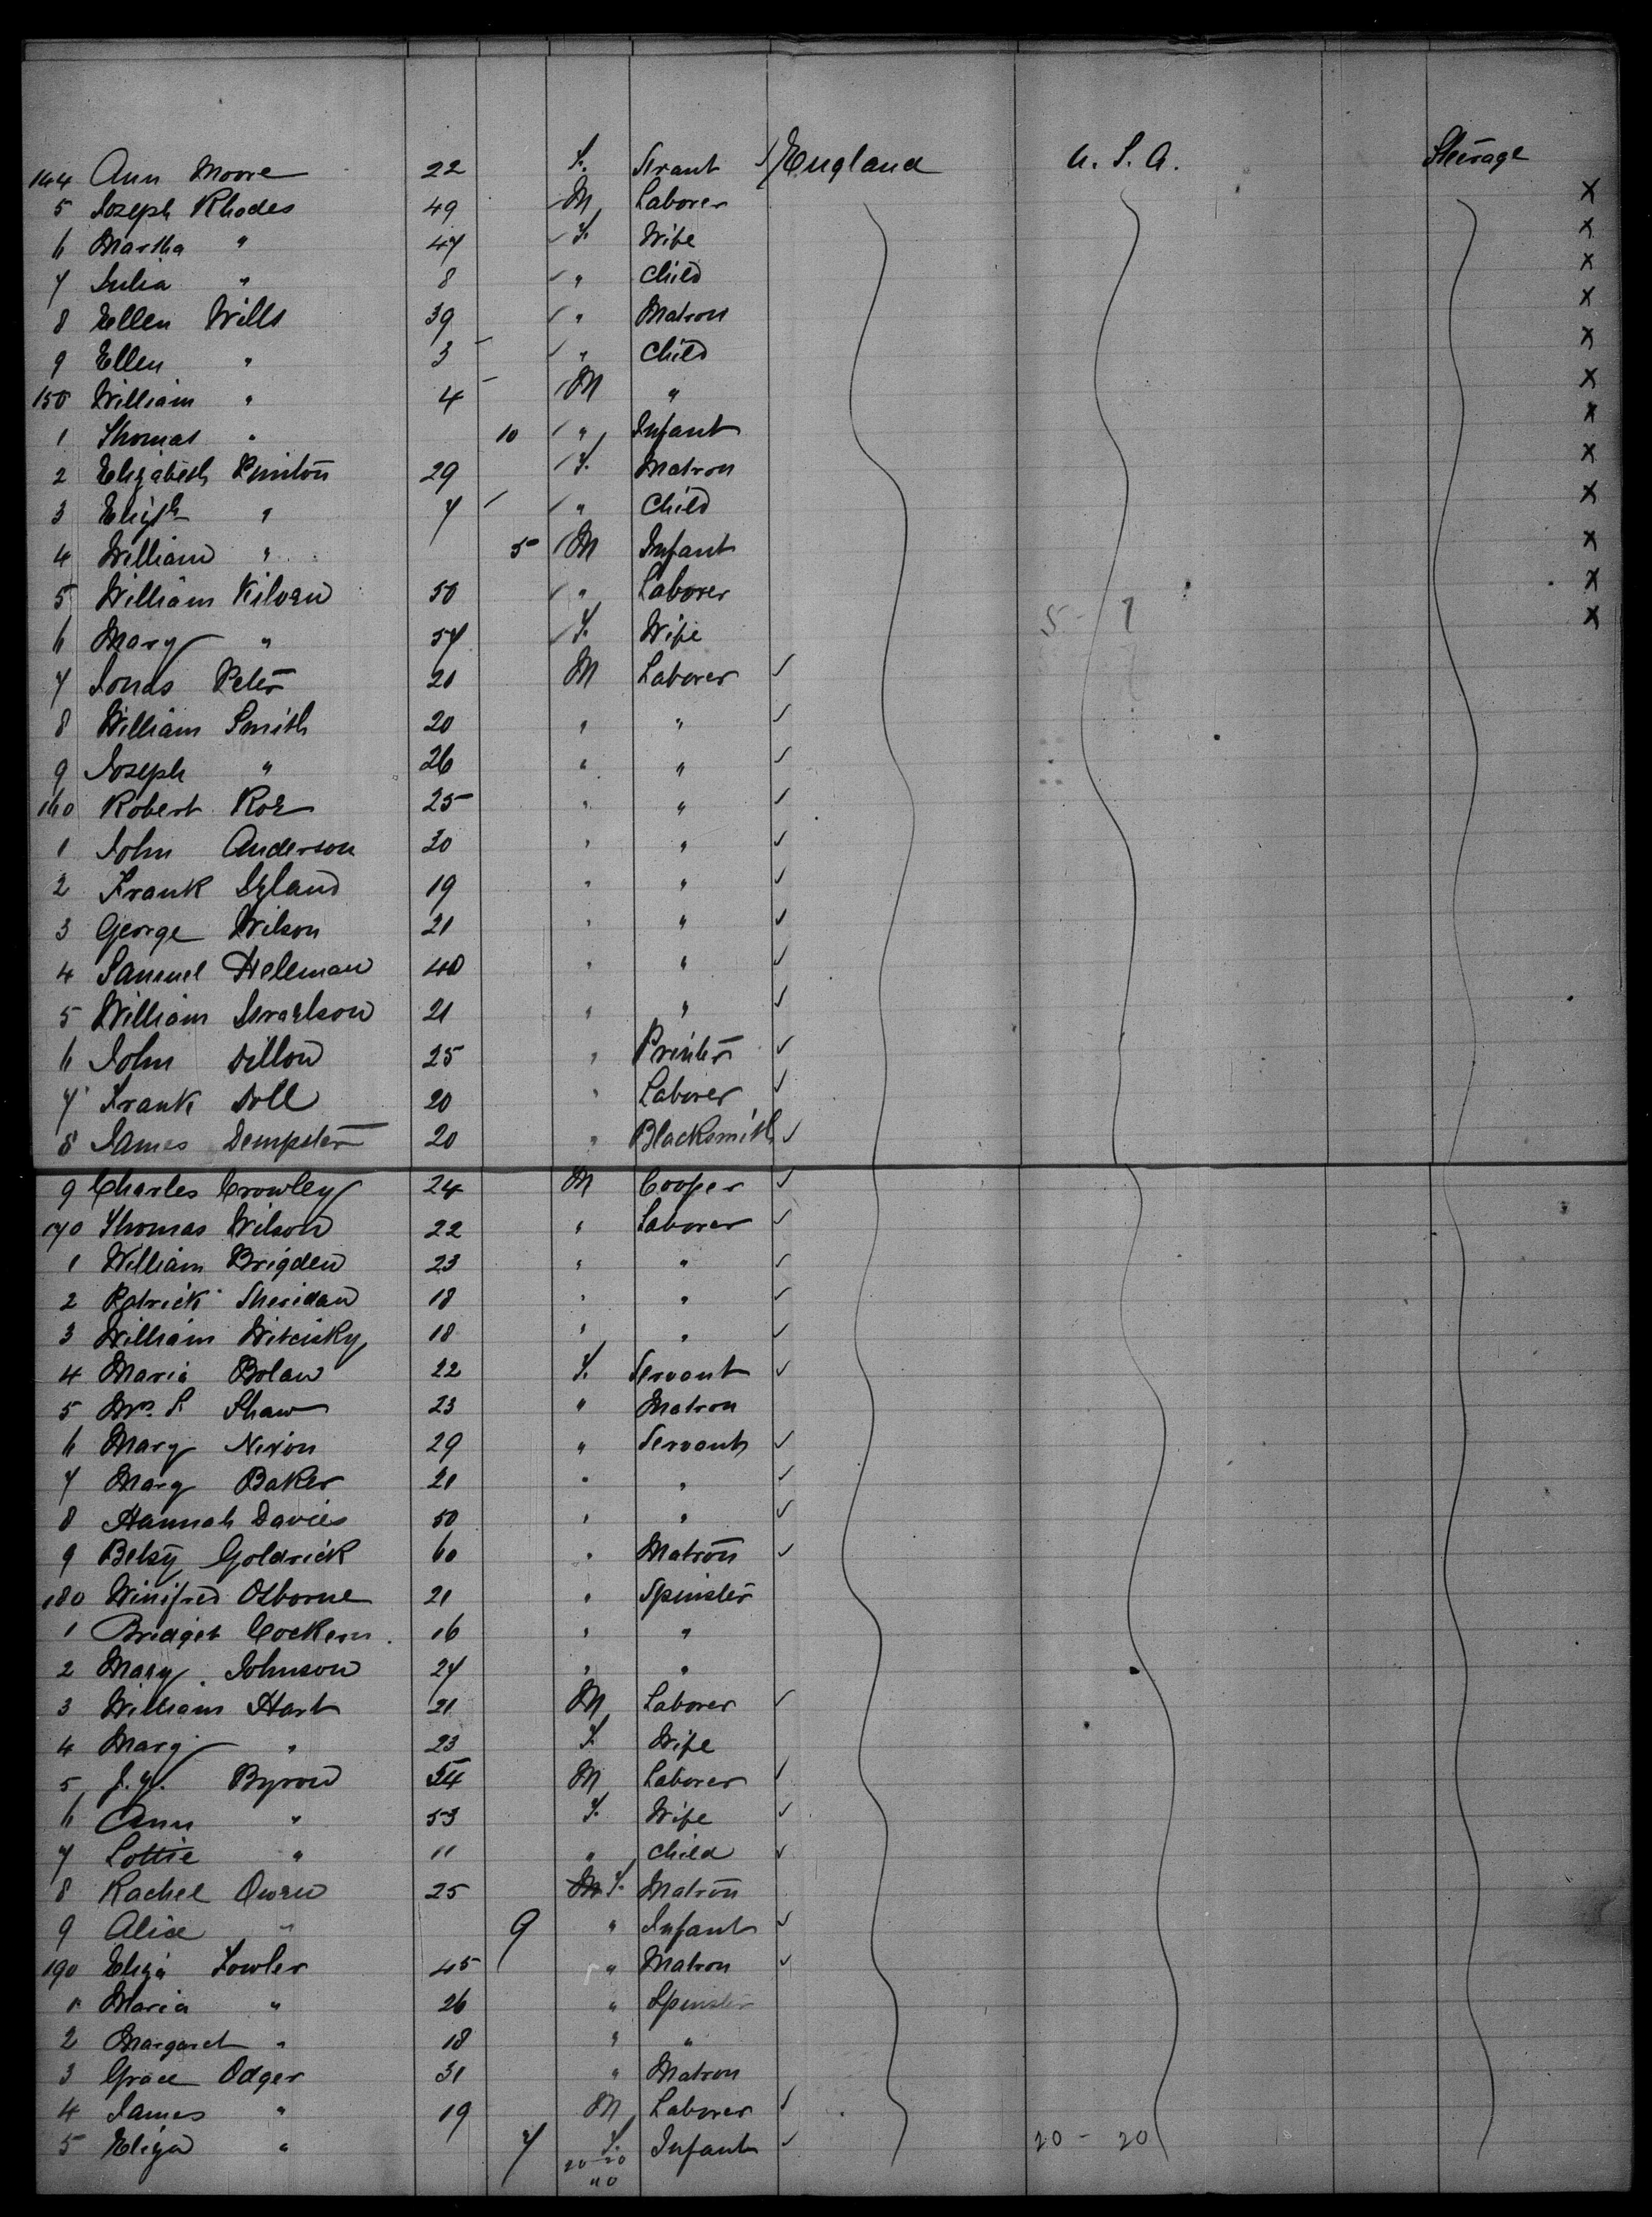 144 Ann Moore 22 F. Servant England U.S.A. Steerage
5 Joseph Rhodes 49 M Laborer X
6 Martha " 47 F. Wife X
7 Julia " 8 " Child X
8 Ellen Wills 39 " Matron X
9 Ellen " 3 " Child X
150 William " 4 M " X
1 Thomas " 10 " Infant X
2 Elizabeth 29 F. Matron X
3 Elizth " 7 " Child X
4 William " 5 M Infant X
5 William 50 " Laborer X
6 Mary " 57 F. Wife 5 - 7 X
7 Jonas Peter 20 M Laborer
8 William Smith 20 " "
9 Joseph " 26 " "
160 Robert Roe 25 " "
1 John Anderson 30 " "
2 Frank 19 " "
3 George Wilson 21 " "
4 Samuel Helleman 40 " "
5 William Israelson 21 " "
6 John Dillon 25 " Printer
7 Frank Doll 20 " Laborer
8 James Dempster 20 " Blacksmith
9 Charles Crowley 24 M Cooper
170 Thomas Wilson 22 " Laborer
1 William Brigden 23 " "
2 Patrick Sheridan 18 " "
3 William Witcisky 18 " "
4 Maria Bolan 22 F. Servant
5 Mrs. S. Shaw 23 " Matron
6 Mary Nixon 29 " Servant
7 Mary Baker 21 " "
8 Hannah Davies 50 " "
9 Betsy Goldrick 60 " Matron
180 Winifred Osborne 21 " Spinster
1 Bridget Cockern 16 " "
2 Mary Johnson 27 " "
3 William Hart 21 M Laborer
4 Mary " 23 F. Wife
5 Byron 54 M Laborer
6 Ann " 53 F. Wife
7 Lottie " 11 " Child
8 Rachel Owen 25 F. Matron
9 Alice " 9 " Infant
190 Eliza Fowler 45 " Matron
1 Maria " 26 " Spinster
2 Margaret " 18 " "
3 Grace Odger 31 " Matron
4 James " 19 M Laborer
5 Eliza " 7 F. Infant 20 - 20
20 - 20
40